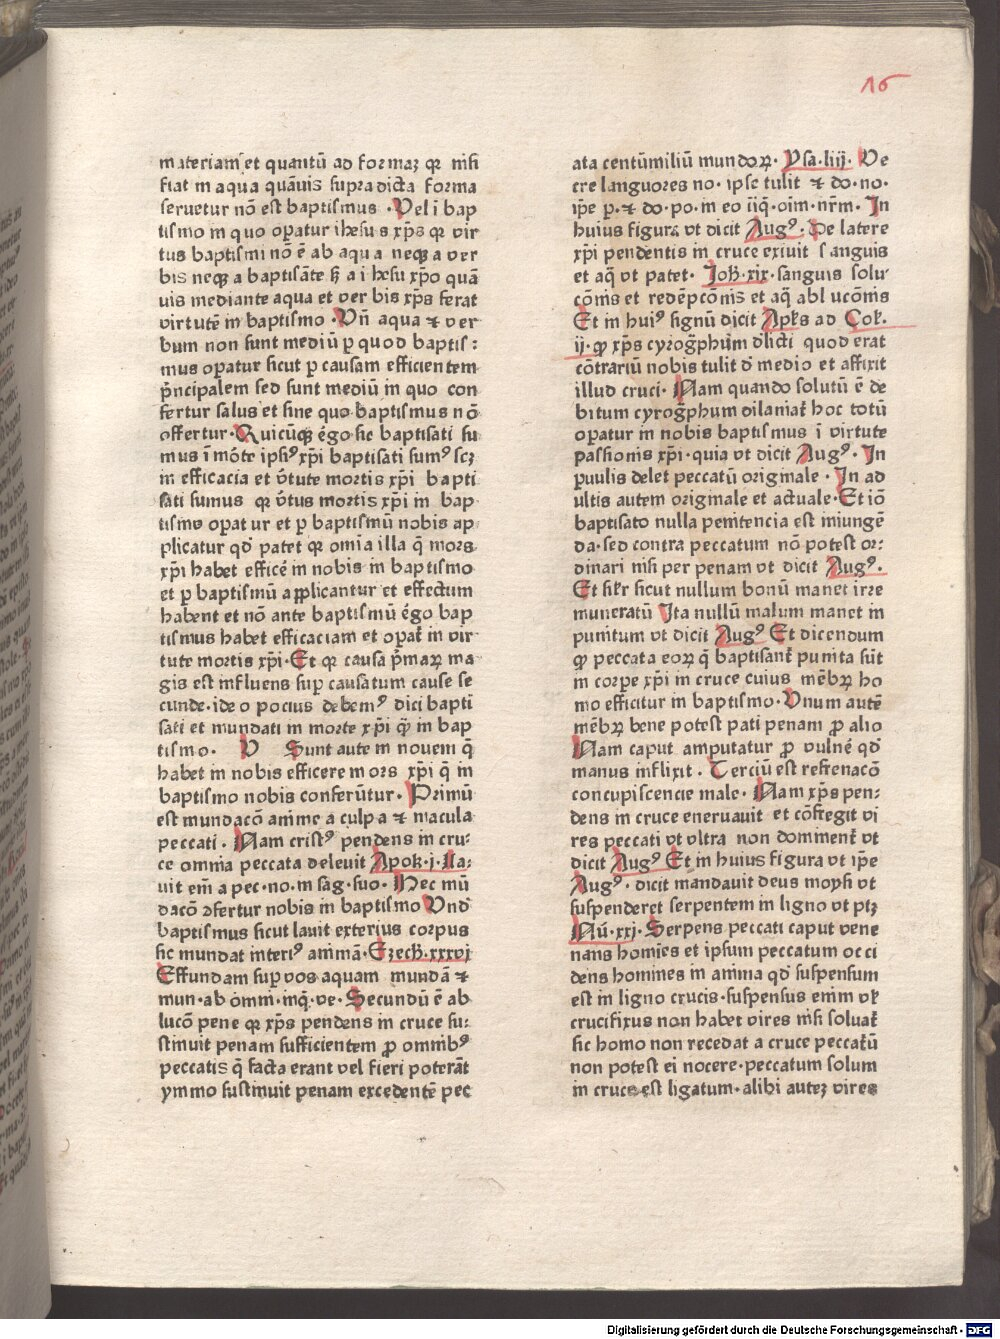 16
materiam et quantū ad formaꝫ qꝛ nisi
fiat in aqua quāuis supradicta forma
seruetur nō est baptismus · Vel ī bap
tismo in quo oꝑatur ihesus xp̄s qꝛ vir
tus baptismi nō ē ab aqua neqꝫ a ver
bis neqꝫ a baptisāte sꝫ a ihesu xp̄o quā
uis mediante aqua et verbis xp̄s ferat
virtutē in baptismo · Vn̄ aqua ⁊ ver
bum non sunt mediū ꝑ quod baptis:
mus oꝑatur sicut ꝑ causam efficientem
p̄ncipalem sed sunt mediū in quo con
fertur salus et sine quo baptismus nō
offertur · Quicūqꝫ ēgo sic baptisati su
mus ī mōte ipsiꝰ xp̄i baptisati sumꝰ scꝫ
in efficacia et v̄tute mortis xp̄i bapti
sati sumus qꝛ v̄tus mortis xp̄i in bap
tismo oꝑatur et ꝑ baptismū nobis ap
plicatur qd̄ patet qꝛ omīa illa q̄ mors
xp̄i habet efficē in nobis in baptismo
et ꝑ baptismū applicantur et effectum
habent et nō ante baptismū ēgo bap
tismus habet efficaciam et oꝑat̄ in vir
tute mortis xp̄i · Et qꝛ causa p̄maꝝ ma
gis est influens suꝑ causatum cause se
cunde · ideo pocius debemꝰ dici bapti
sati et mundati in morte xp̄i qꝫ̄ in bap
tismo · V Sunt autem nouem q̄
habet in nobis efficere mors xp̄i q̄ in
baptismo nobis conferūtur · Primū
est mundacō anime a culpa ⁊ macula
peccati · Nam cristꝰ pendens in cru:
ce omnia peccata deleuit Apok · j · La:
uit em̄ a pec · no · in sag · suo · Hec mū
dacō ꝯfertur nobis in baptismo Vnd̄
baptismus sicut lauit exterius corpus
sic mundat interiꝰ animā · Ezech · xxxvj
Effundam suꝑ vos aquam mundā ⁊
mun · ab omni · inq̄ · ve · Secundū ē ab
lucō pene qꝛ xp̄s pendens in cruce su:
stinuit penam sufficientem ꝓ omnibꝰ
peccatis q̄ facta erant vel fieri poterāt
ymmo sustinuit penam excedentē pec
ata centūmiliū mundoꝝ · Psa · liij · Ve
ere languores no · ipse tulit ⁊ do · no ·
ip̄e p · ⁊ do · po · in eo iiq̄ · oim̄ · nr̄m · In
huius figura vt dicit Augꝰ · De latere
xp̄i pendentis in cruce exiuit sanguis
et aq̄ vt patet · Joh̄ · xix · sanguis solu
cōnis et redēpcōnis et aq̄ abluconis
Et in huiꝰ signū dicit Apl̄s ad Col̄ ·
ij · qꝫ xp̄s cyrog̅phum d̄licti quod erat
cōtrariū nobis tulit d̄ medio et affixit
illud cruci · Nam quando solutū ē de
bitum cyrog̅phum dilaniat̄ hoc totū
oꝑatur in nobis baptismus ī virtute
passionis xp̄i · quia vt dicit Augꝰ · In
ꝑuulis delet peccatū originale · In ad
ultis autem originale et actuale · Et iō
baptisato nulla penitencia est iniungē
da · sed contra peccatum nō potest or:
dinari nisi per penam vt dicit Augꝰ ·
Et sil̄r sicut nullum bonū manet irre
muneratū Ita nullū malum manet in
punitum vt dicit Augꝰ Et dicendum
qꝫ peccata eoꝝ q̄ baptisant̄ punita sūt
in corpe xp̄i in cruce cuius mēbꝝ ho
mo efficitur in baptismo · Vnum autē
mēbꝝ bene potest pati penam ꝓ alio
Nam caput amputatur ꝓ vulnē qd̄
manus inflixit · Terciū est refrenacō
concupiscencie male · Nam xp̄s pen:
dens in cruce eneruauit et cōfregit vi
res peccati vt vltra non dominent̄ vt
dicit Augꝰ Et in huius figura vt ip̄e
Augꝰ · dicit mandauit deus moysi vt
suspenderet serpentem in ligno vt ptꝫ
Nū · xxj · Serpens peccati caput vene
nans homīes et ipsum peccatum occi
dens homines in anima qd̄ suspensum
est in ligno crucis · suspensus enim vl̄
crucifixus non habet vires nisi soluat̄
sic homo non recedat a cruce peccatū
non potest ei nocere · peccatum solum
in cruce est ligatum · alibi auteꝫ vires
Digitalisierung gefördert durch die Deutsche Forschungsgemeinschaft · DFG